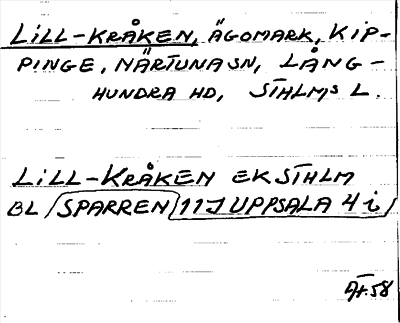 LILL-KRÅKEN, ÄGOMARK, KIP-
PINGE, NÄRTUNA SN, LÅNG-
HUNDRA HD, STHLMS L.
LILL-KRÅKEN EK STHLM
BL SPARREN 11J UPPSALA 4 i
58